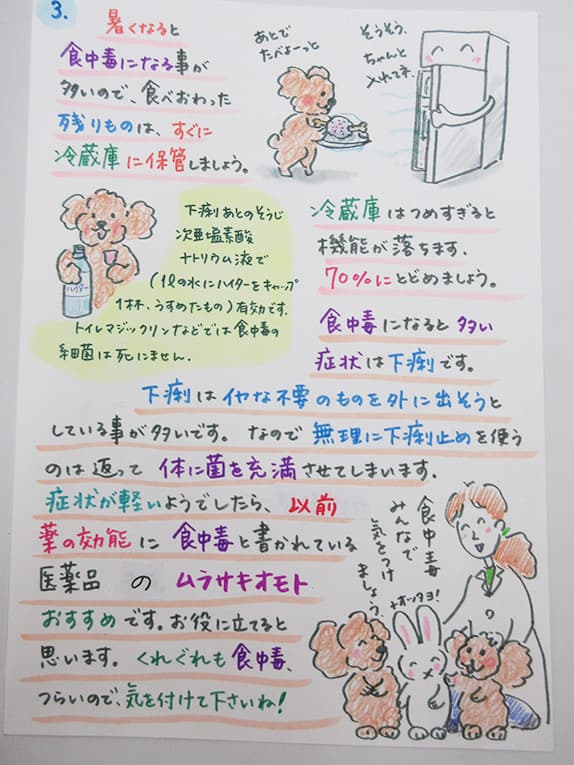 3.
暑くなると
食中毒になる事が
多いので、食べおわった
残りものは、すぐに
冷蔵庫に保管しましょう。
あとで
たべよーっと
そうそう、
ちゃんと
入れてネ。
下痢あとのそうじ
次亜塩素酸
ナトリウム液で
(1ℓの水にハイターをキャップ
1杯、うすめたもの)有効です。
トイレマジックリンなどでは食中毒の
細菌は死にません.
ハイター
冷蔵庫はつめすぎると
機能が落ちます.
70%にとどめましょう。
食中毒になると多い
症状は下痢です。
下痢はイヤな不要のものを外に出そうと
している事が多いです。なので無理に下痢止めを使う
のは返って体に菌を充満させてしまいます.
症状が軽いようでしたら、以前
薬の効能に食中毒と書かれている
医薬品 の ムラサキオモト
おすすめです。お役に立てると
思います。くれぐれも食中毒、
つらいので、気を付けて下さいね!
食中毒
みんなで
気をつけ
ましょう。